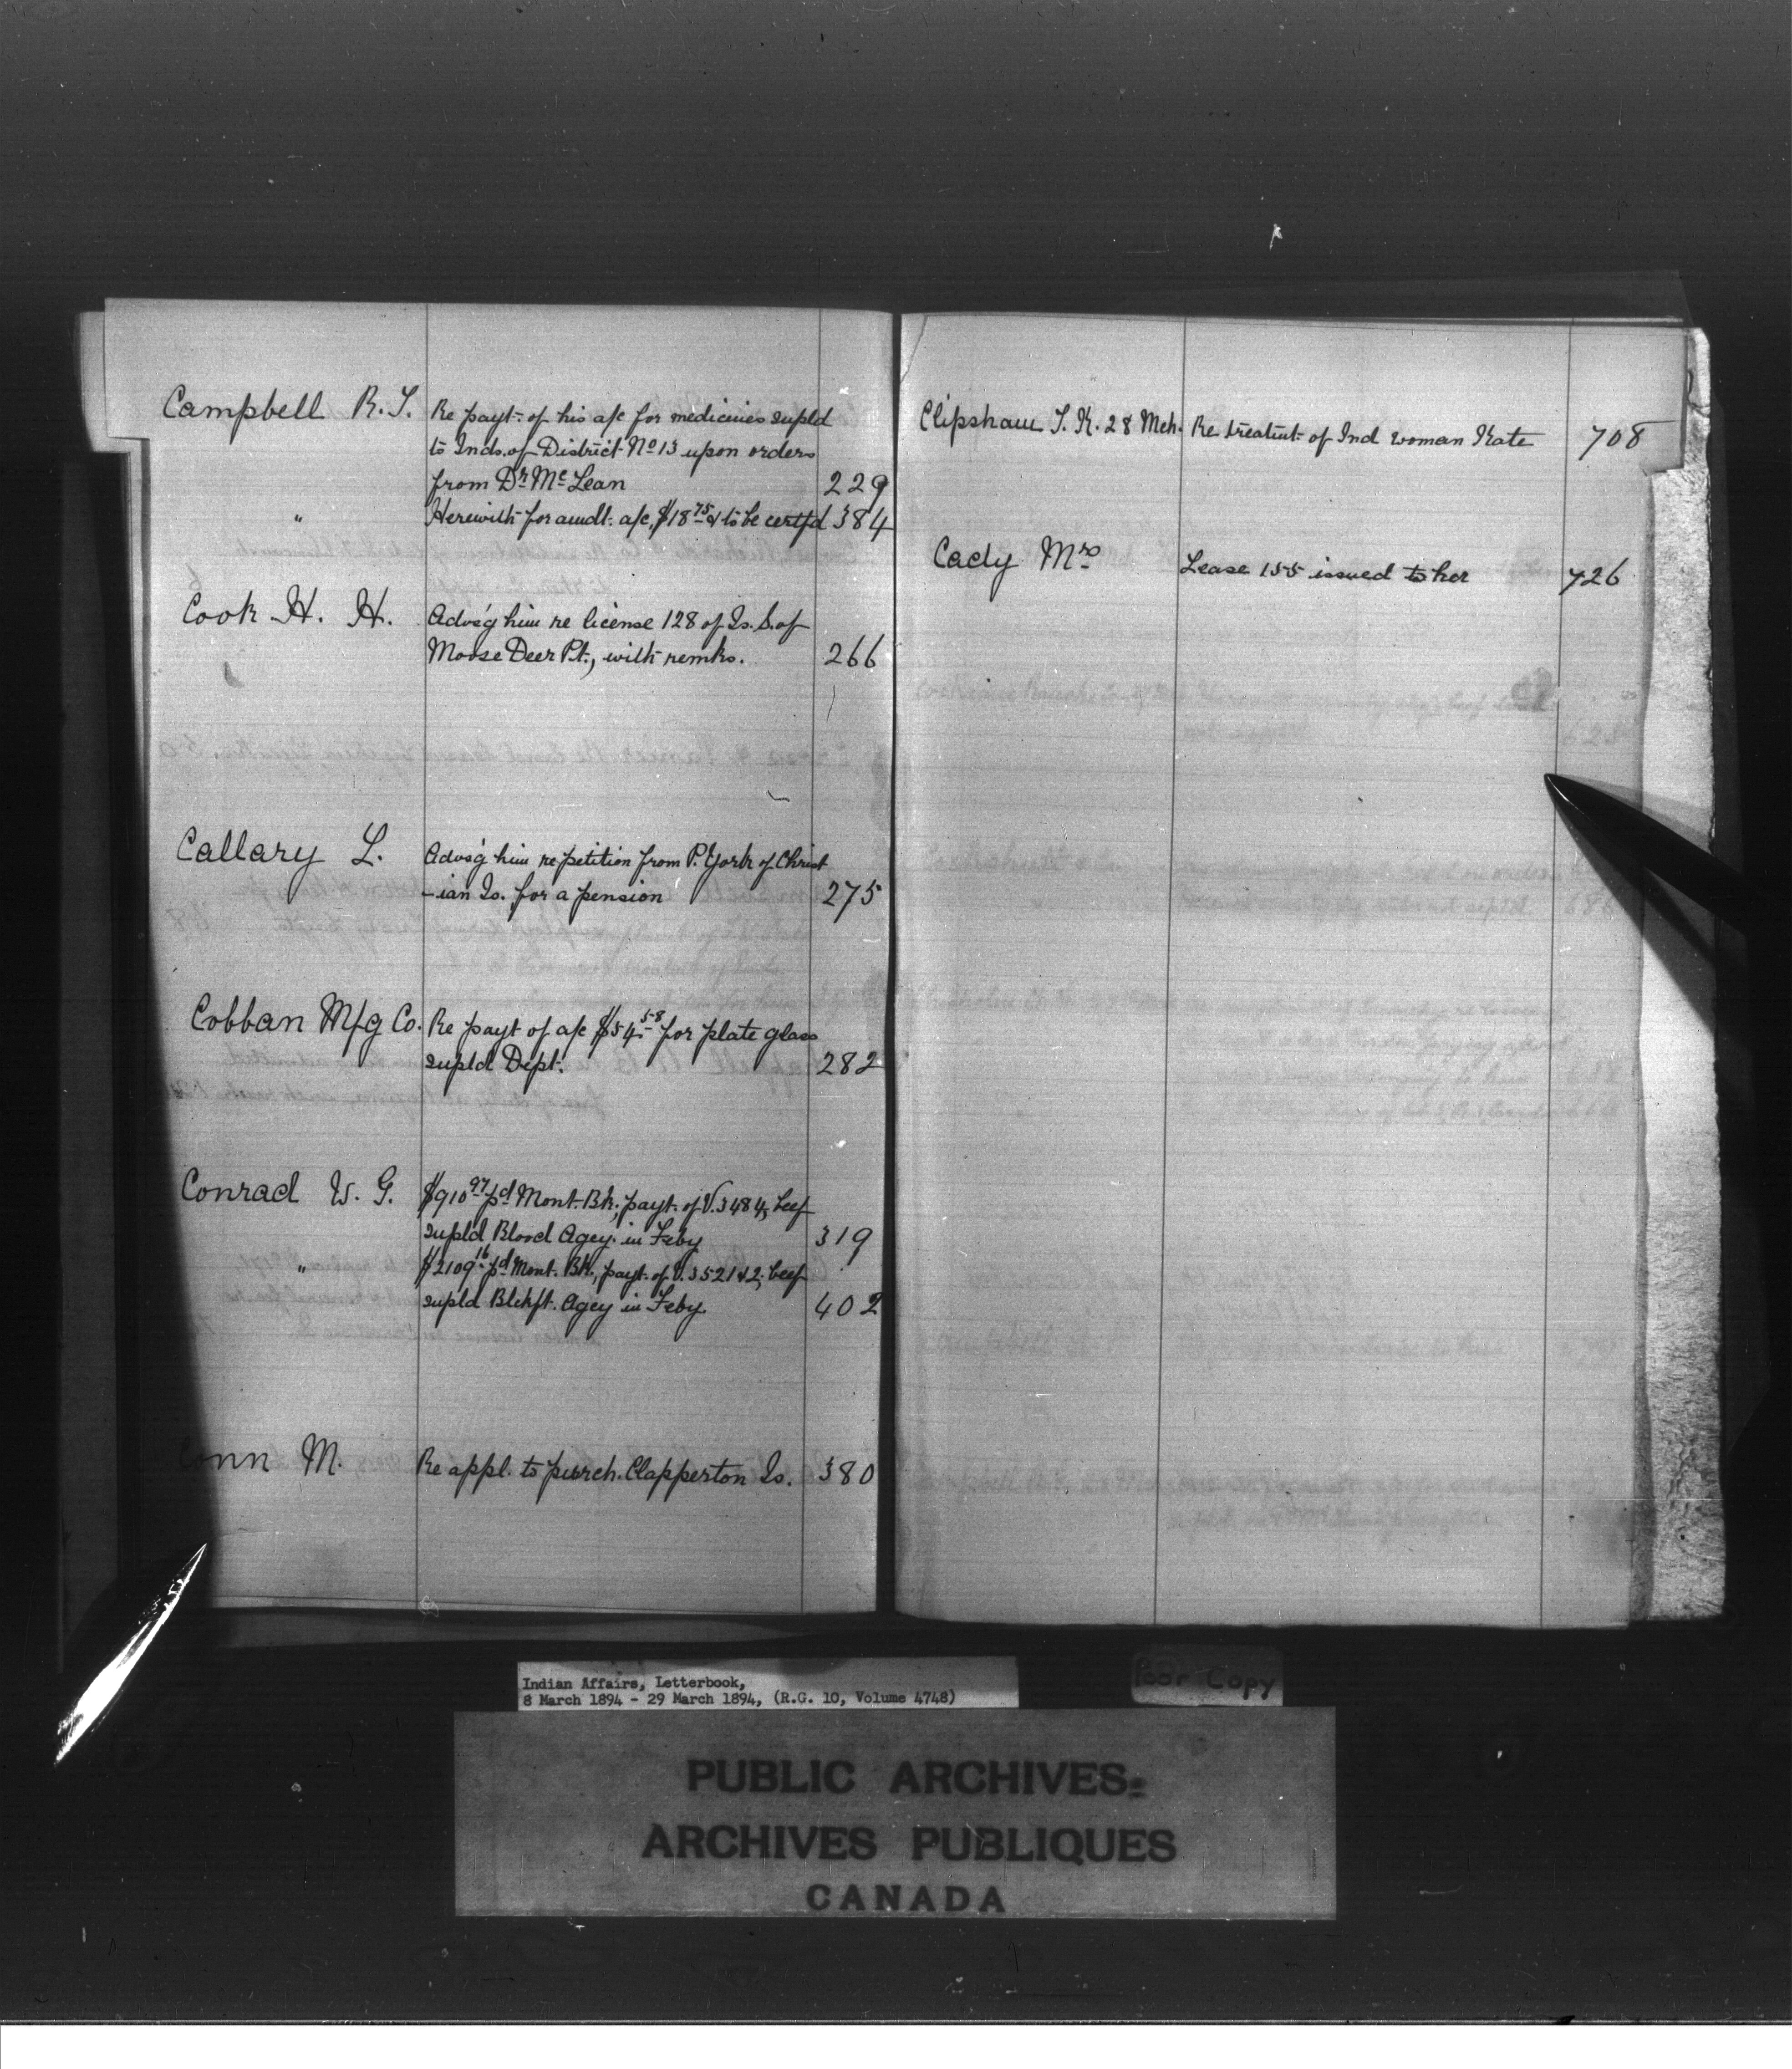 Campbell R. T. Re payt. of his a/c for medicines supld
to Inds. of District No 13 upon orders
from Dr. Mc Lean 229
" Herewith for amdt. a/c, $18 75 & to be certfd 384
Cook H. H. Advs'g him re license 128 of Is. S. of
Moose Deer Pt., with remks. 266
Callary L. Advs'g him re petition from P. York of Christ
-ian Is. for a pension 275
Cobban Mfg Co. Re payt of a/c $54 58 for plate glass
supld Dept. 282
Conrad W. G. $910 97 pd Mont. Bk; payt. of V. 3484, beef
supld Blood Agey. in Feby 319
" $2109 16 pd Mont. Bk., payt. of V. 3521 & 2, beef
supld Blckft. Agey in Feby 402
Conn M. Re appl. to purch. Clapperton Is. 380
Clipsham T. K. 28 Mch. Re treatmt. of Ind woman Kate 708
Cady Mrs Lease 155 issued to her 726
Indian Affairs, Letterbook,
8 March 1894 - 29 March 1894, (R.G. 10, Volume 4748)
Poor Copy
PUBLIC ARCHIVES
ARCHIVES PUBLIQUES
CANADA